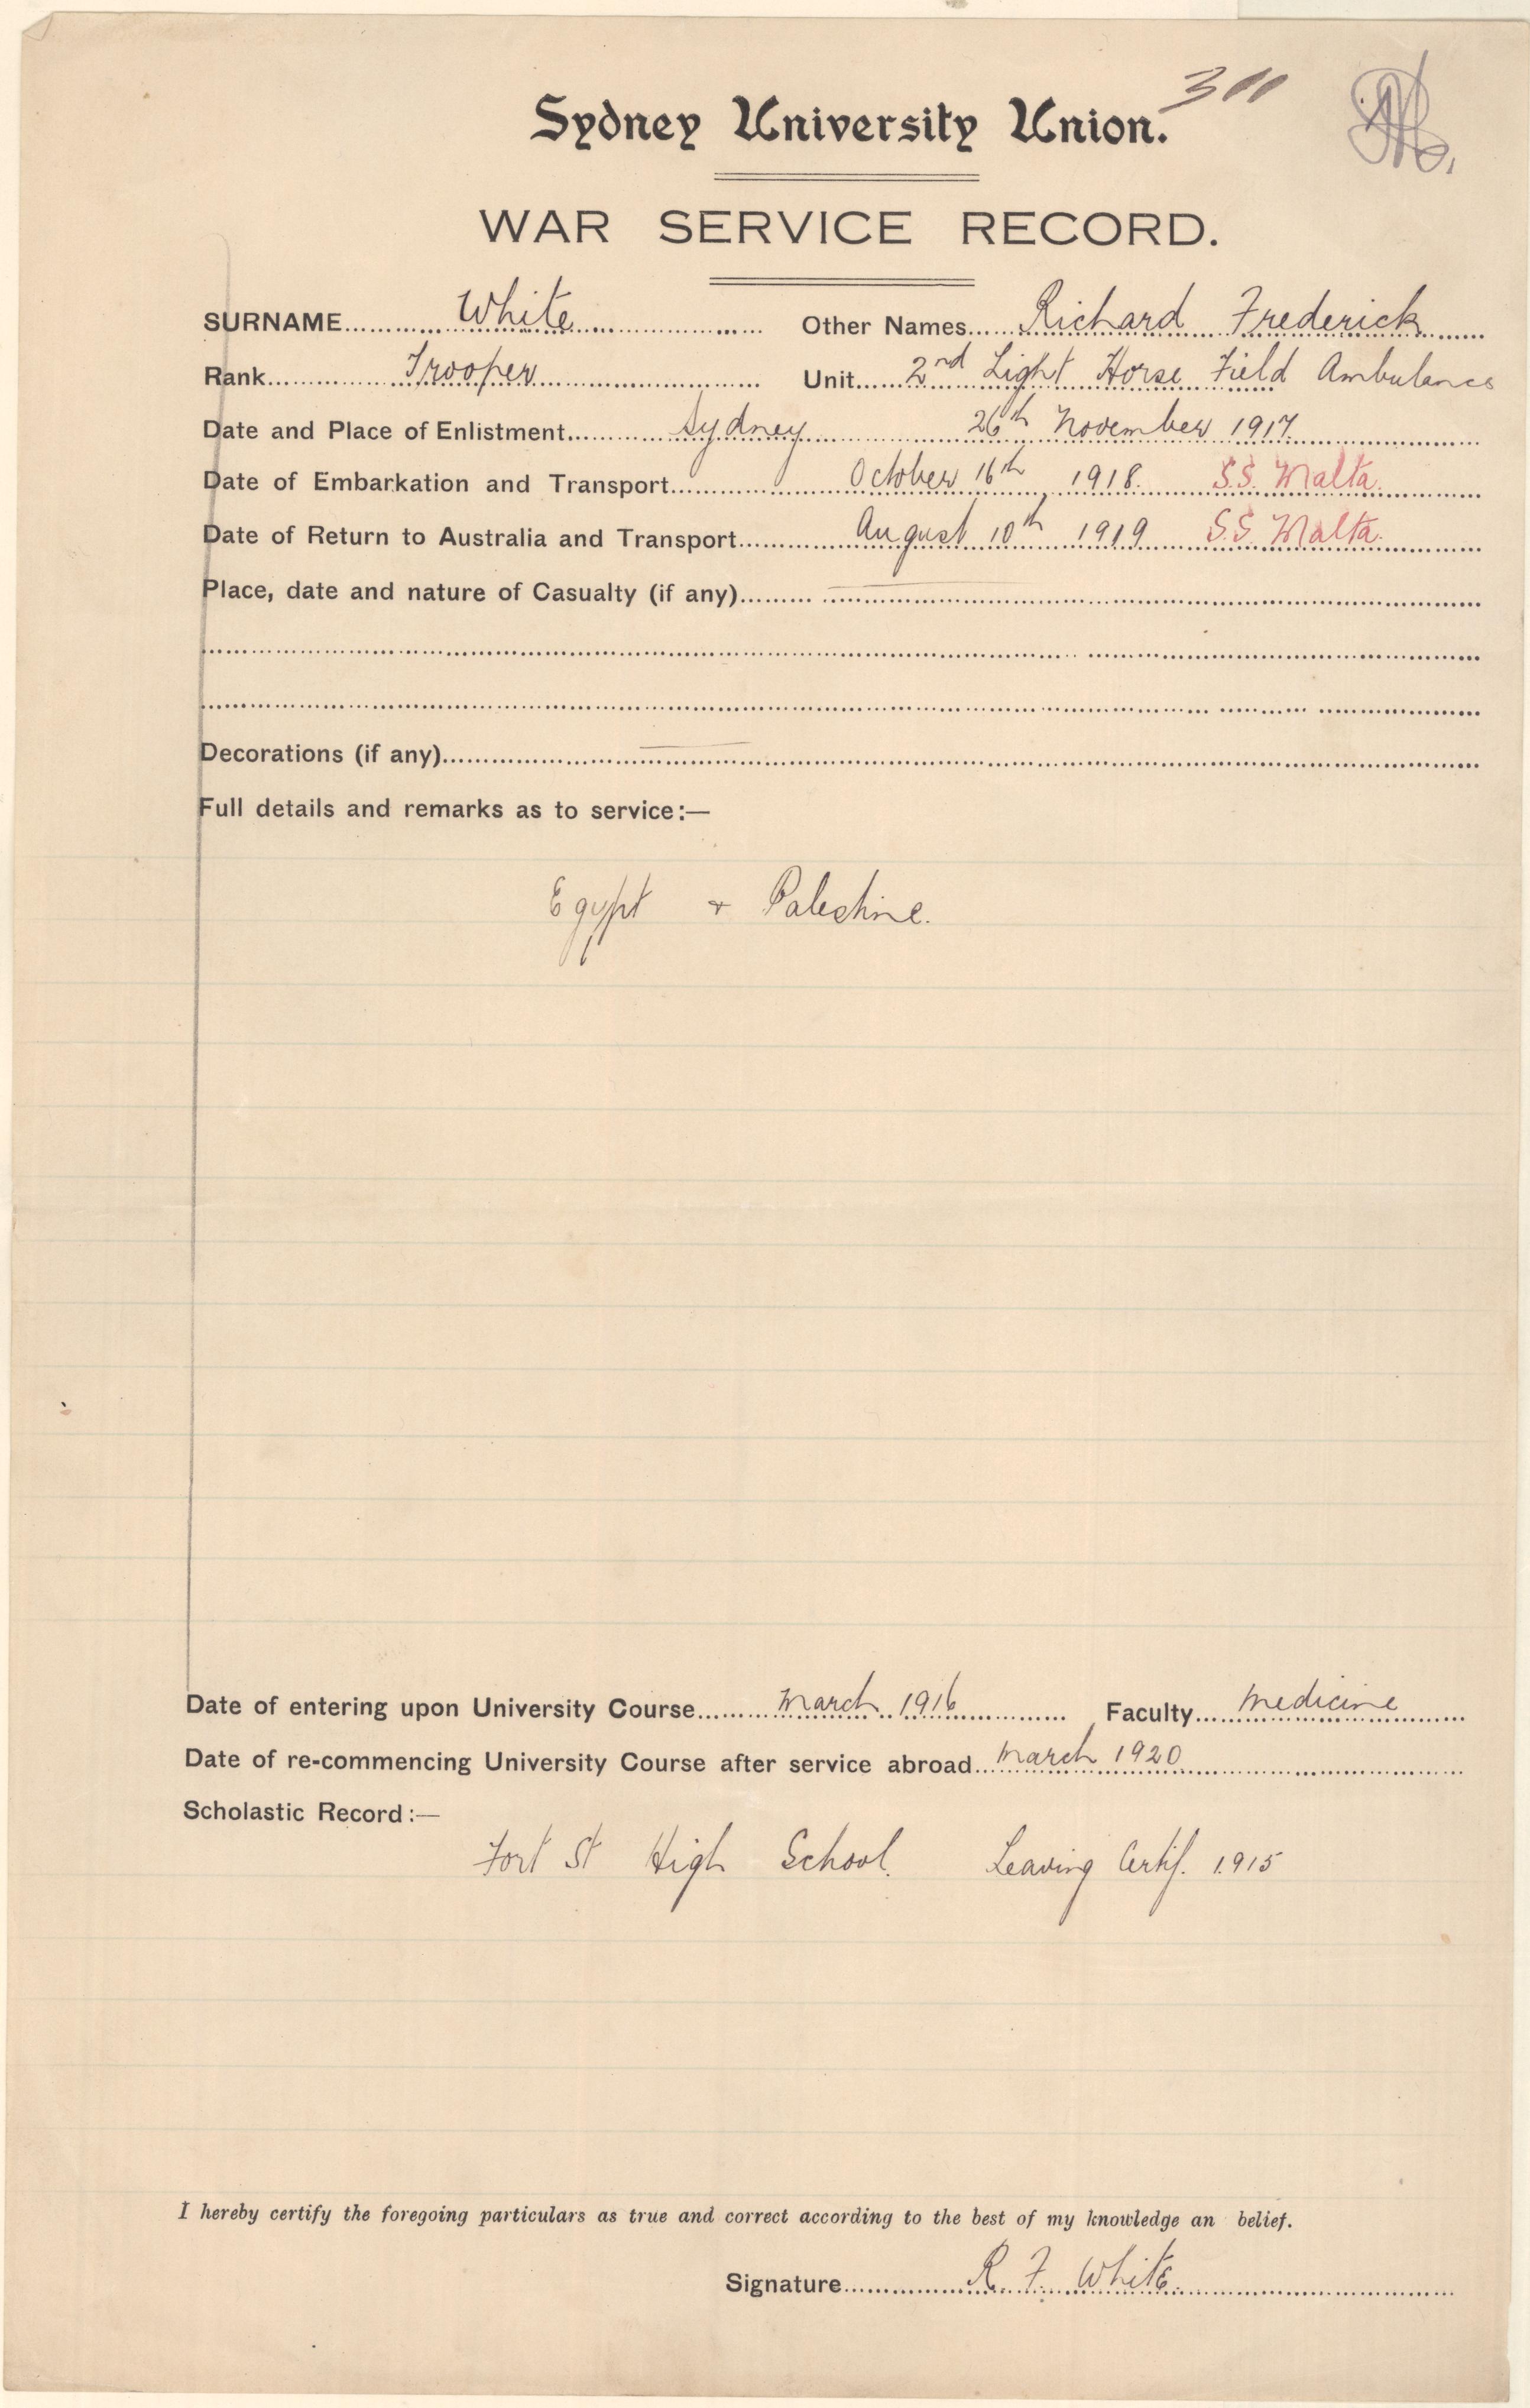 Sydney University Union. 311
WAR SERVICE RECORD.
SURNAME White Other Names Richard Frederick
Rank Trooper Unit 2nd Light Horse Field Ambulance
Date and Place of Enlistment Sydney 26th November 1917
Date of Embarkation and Transport October 16th 1918. S.S. Malta.
Date of Return to Australia and Transport August 10th 1919 S.S. Malta.
Place, date and nature of Casualty (if any)
Decorations (if any)
Full details and remarks as to service:—
Egypt + Palestine.
Date of entering upon University Course March 1916 Faculty Medicine
Date of re-commencing University Course after service abroad March 1920
Scholastic Record:—
Fort St High School. Leaving Certif. 1915
I hereby certify the foregoing particulars as true and correct according to the best of my knowledge an belief.
Signature R. F. White